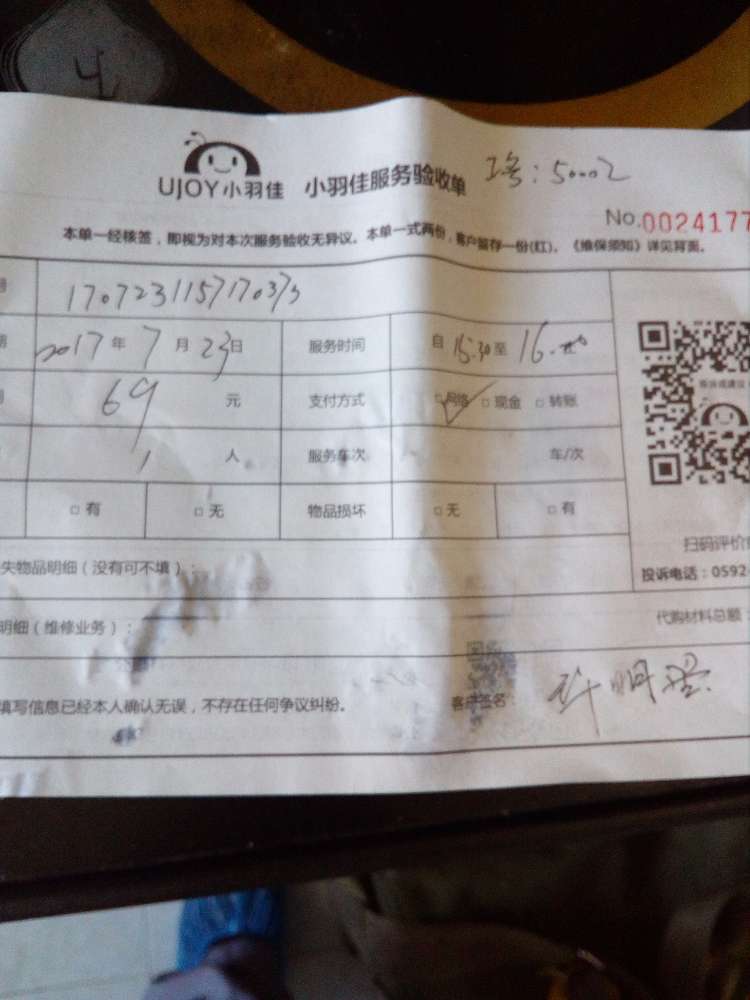 UJOY小羽佳 小羽佳服务验收单 工号:50002
No.0024177
本单一经核签，即视为对本次服务验收无异议。本单一式两份，客户留存一份(红)。《维保须知》详见背面。
2017年7月23日 服务时间 自15:30至16:
69元 支付方式 □网络 □现金 □转账
1人 服务车次 车/次
□有 □无 物品损坏 □无 □有
扫码评价
失物品明细（没有可不填）： 投诉电话：0592-
明细（维修业务）： 代购材料总额：
填写信息已经本人确认无误，不存在任何争议纠纷。 客户签名：